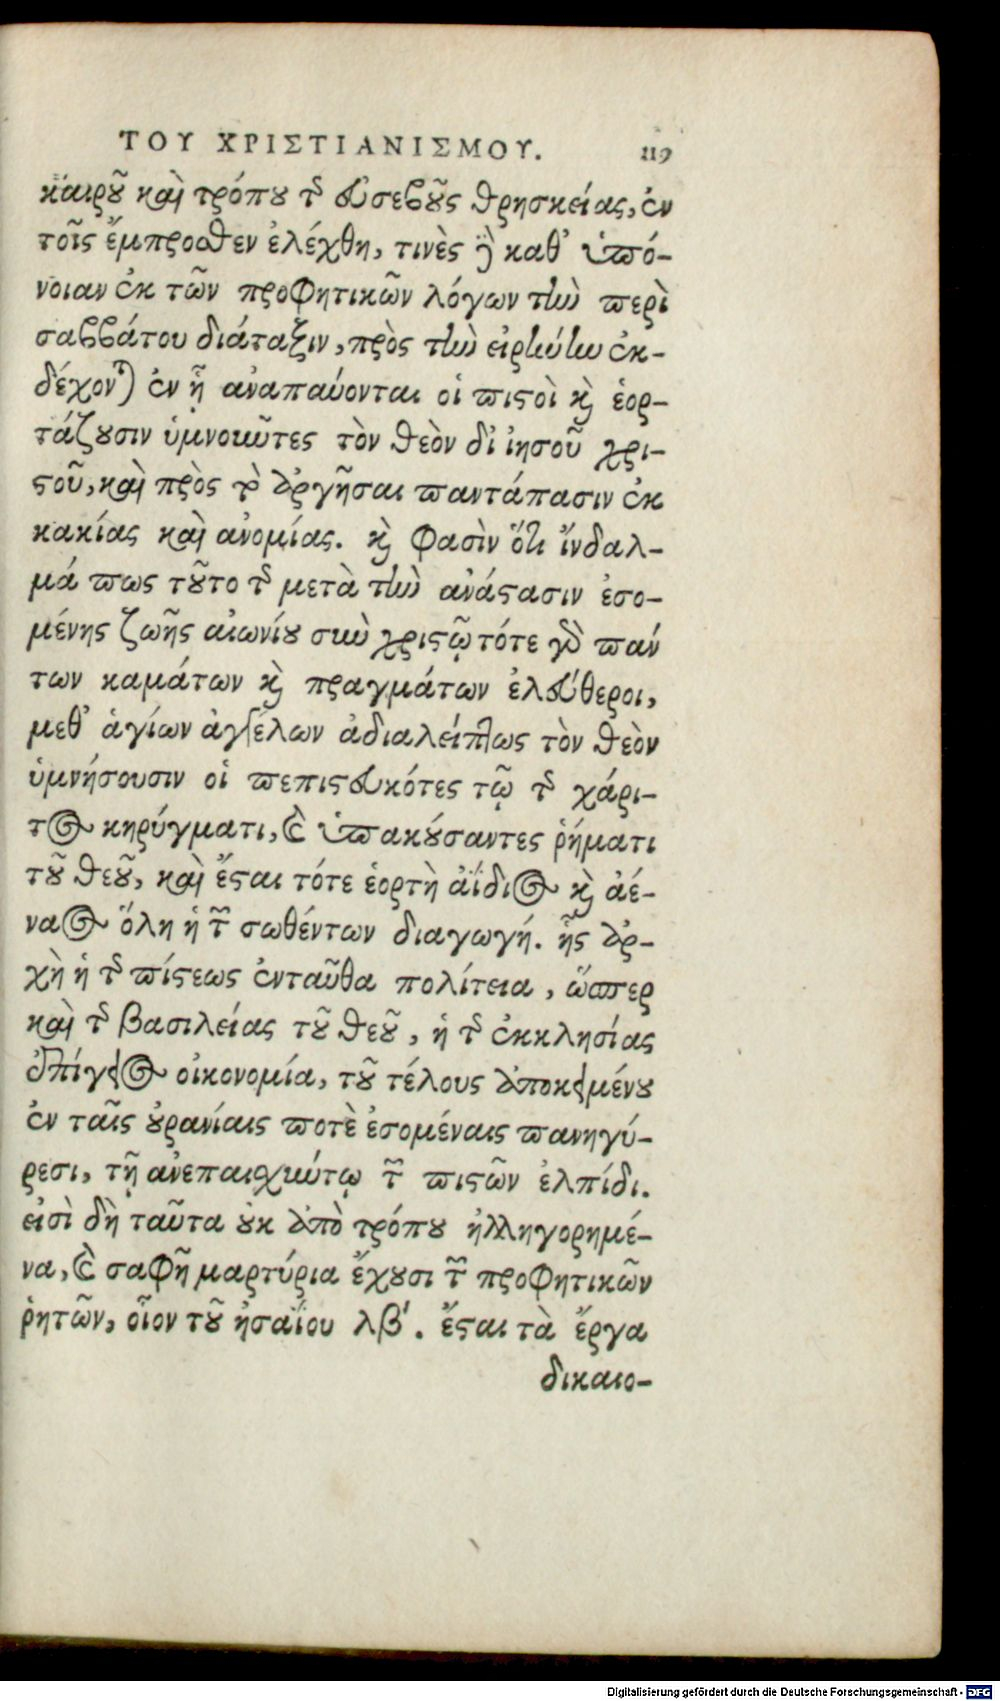 ΤΟΥ ΧΡΙΣΤΙΑΝΙΣΜΟΥ. 119
καιροῦ καὶ τρόπου τῆς εὐσεβοῦς θρησκείας, ἐν
τοῖς ἔμπροσθεν ἐλέχθη, τινὲς δὲ καθ' ὑπό-
νοιαν ἐκ τῶν προφητικῶν λόγων τὴν περὶ
σαββάτου διάταξιν, πρὸς τὴν εἰρήνην ἐκ-
δέχονται ἐν ᾗ ἀναπαύονται οἱ πιστοὶ καὶ ἑορ-
τάζουσιν ὑμνοῦντες τὸν θεὸν δι' ἰησοῦ χρι-
στοῦ, καὶ πρὸς τὸ ἀργῆσαι παντάπασιν ἐκ
κακίας καὶ ἀνομίας. καὶ φασὶν ὅτι ἴνδαλ-
μά πως τοῦτο τῆς μετὰ τὴν ἀνάστασιν ἐσο-
μένης ζωῆς αἰωνίου σὺν χριστῷ τότε γὰρ παν
των καμάτων καὶ πραγμάτων ἐλεύθεροι,
μεθ' ἁγίων ἀγγέλων ἀδιαλείπτως τὸν θεὸν
ὑμνήσουσιν οἱ πεπιστευκότες τῷ τῆς χάρι-
τος κηρύγματι, καὶ ὑπακούσαντες ῥήματι
τοῦ θεοῦ, καὶ ἔσται τότε ἑορτὴ ἀΐδιος καὶ ἀέ-
ναος ὅλη ἡ τῶν σωθέντων διαγωγή. ἧς ἀρ-
χὴ ἡ τῆς πίστεως ἐνταῦθα πολίτεια, ὥσπερ
καὶ τῆς βασιλείας τοῦ θεοῦ, ἡ τῆς ἐκκλησίας
ἐπίγειος οἰκονομία, τοῦ τέλους ἀποκειμένου
ἐν ταῖς οὐρανίαις ποτὲ ἐσομέναις πανηγύ-
ρεσι, τῇ ἀνεπαισχύντῳ τῶν πιστῶν ἐλπίδι.
εἰσὶ δὴ ταῦτα οὐκ ἀπὸ τρόπου ἠλληγορημέ-
να, καὶ σαφῆ μαρτύρια ἔχουσι τῶν προφητικῶν
ῥητῶν, οἷον τοῦ ἠσαΐου λβ'. ἔσται τὰ ἔργα
δικαιο-
Digitalisierung gefördert durch die Deutsche Forschungsgemeinschaft - DFG